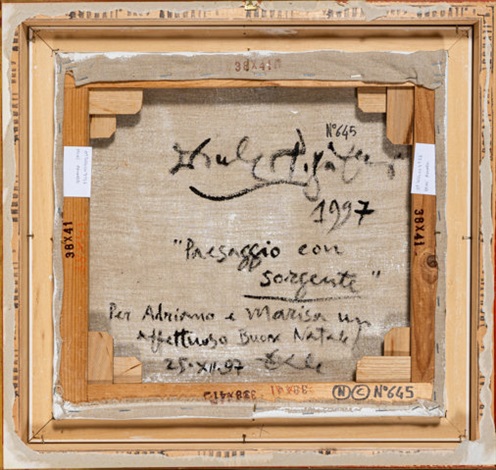 38X41
N°645
1997
"Paesaggio con
sorgente"
Per Adriano e Marisa un
affettuoso Buon Natale
25·XII.97
38X41
38X41
38X41
N C N°645